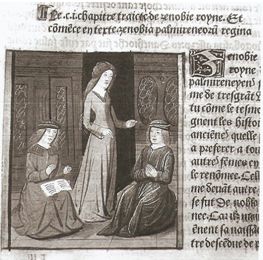 Le .c.i. chapitre traicte de zenobie royne. Et
cõmẽce en texte zenobia palmireneorũ regina
Zenobie
royne
palmireneyens
me de tresgrãt
tu cõme le tesmo
gnent les histoi
anciẽnes quelle
a preferer a tou
autres fẽmes en
le renõmee. Celle
me deuãt autre
se fut de nobl
nee. Car ilz
ẽnent sa naissã
tre descẽdue de p